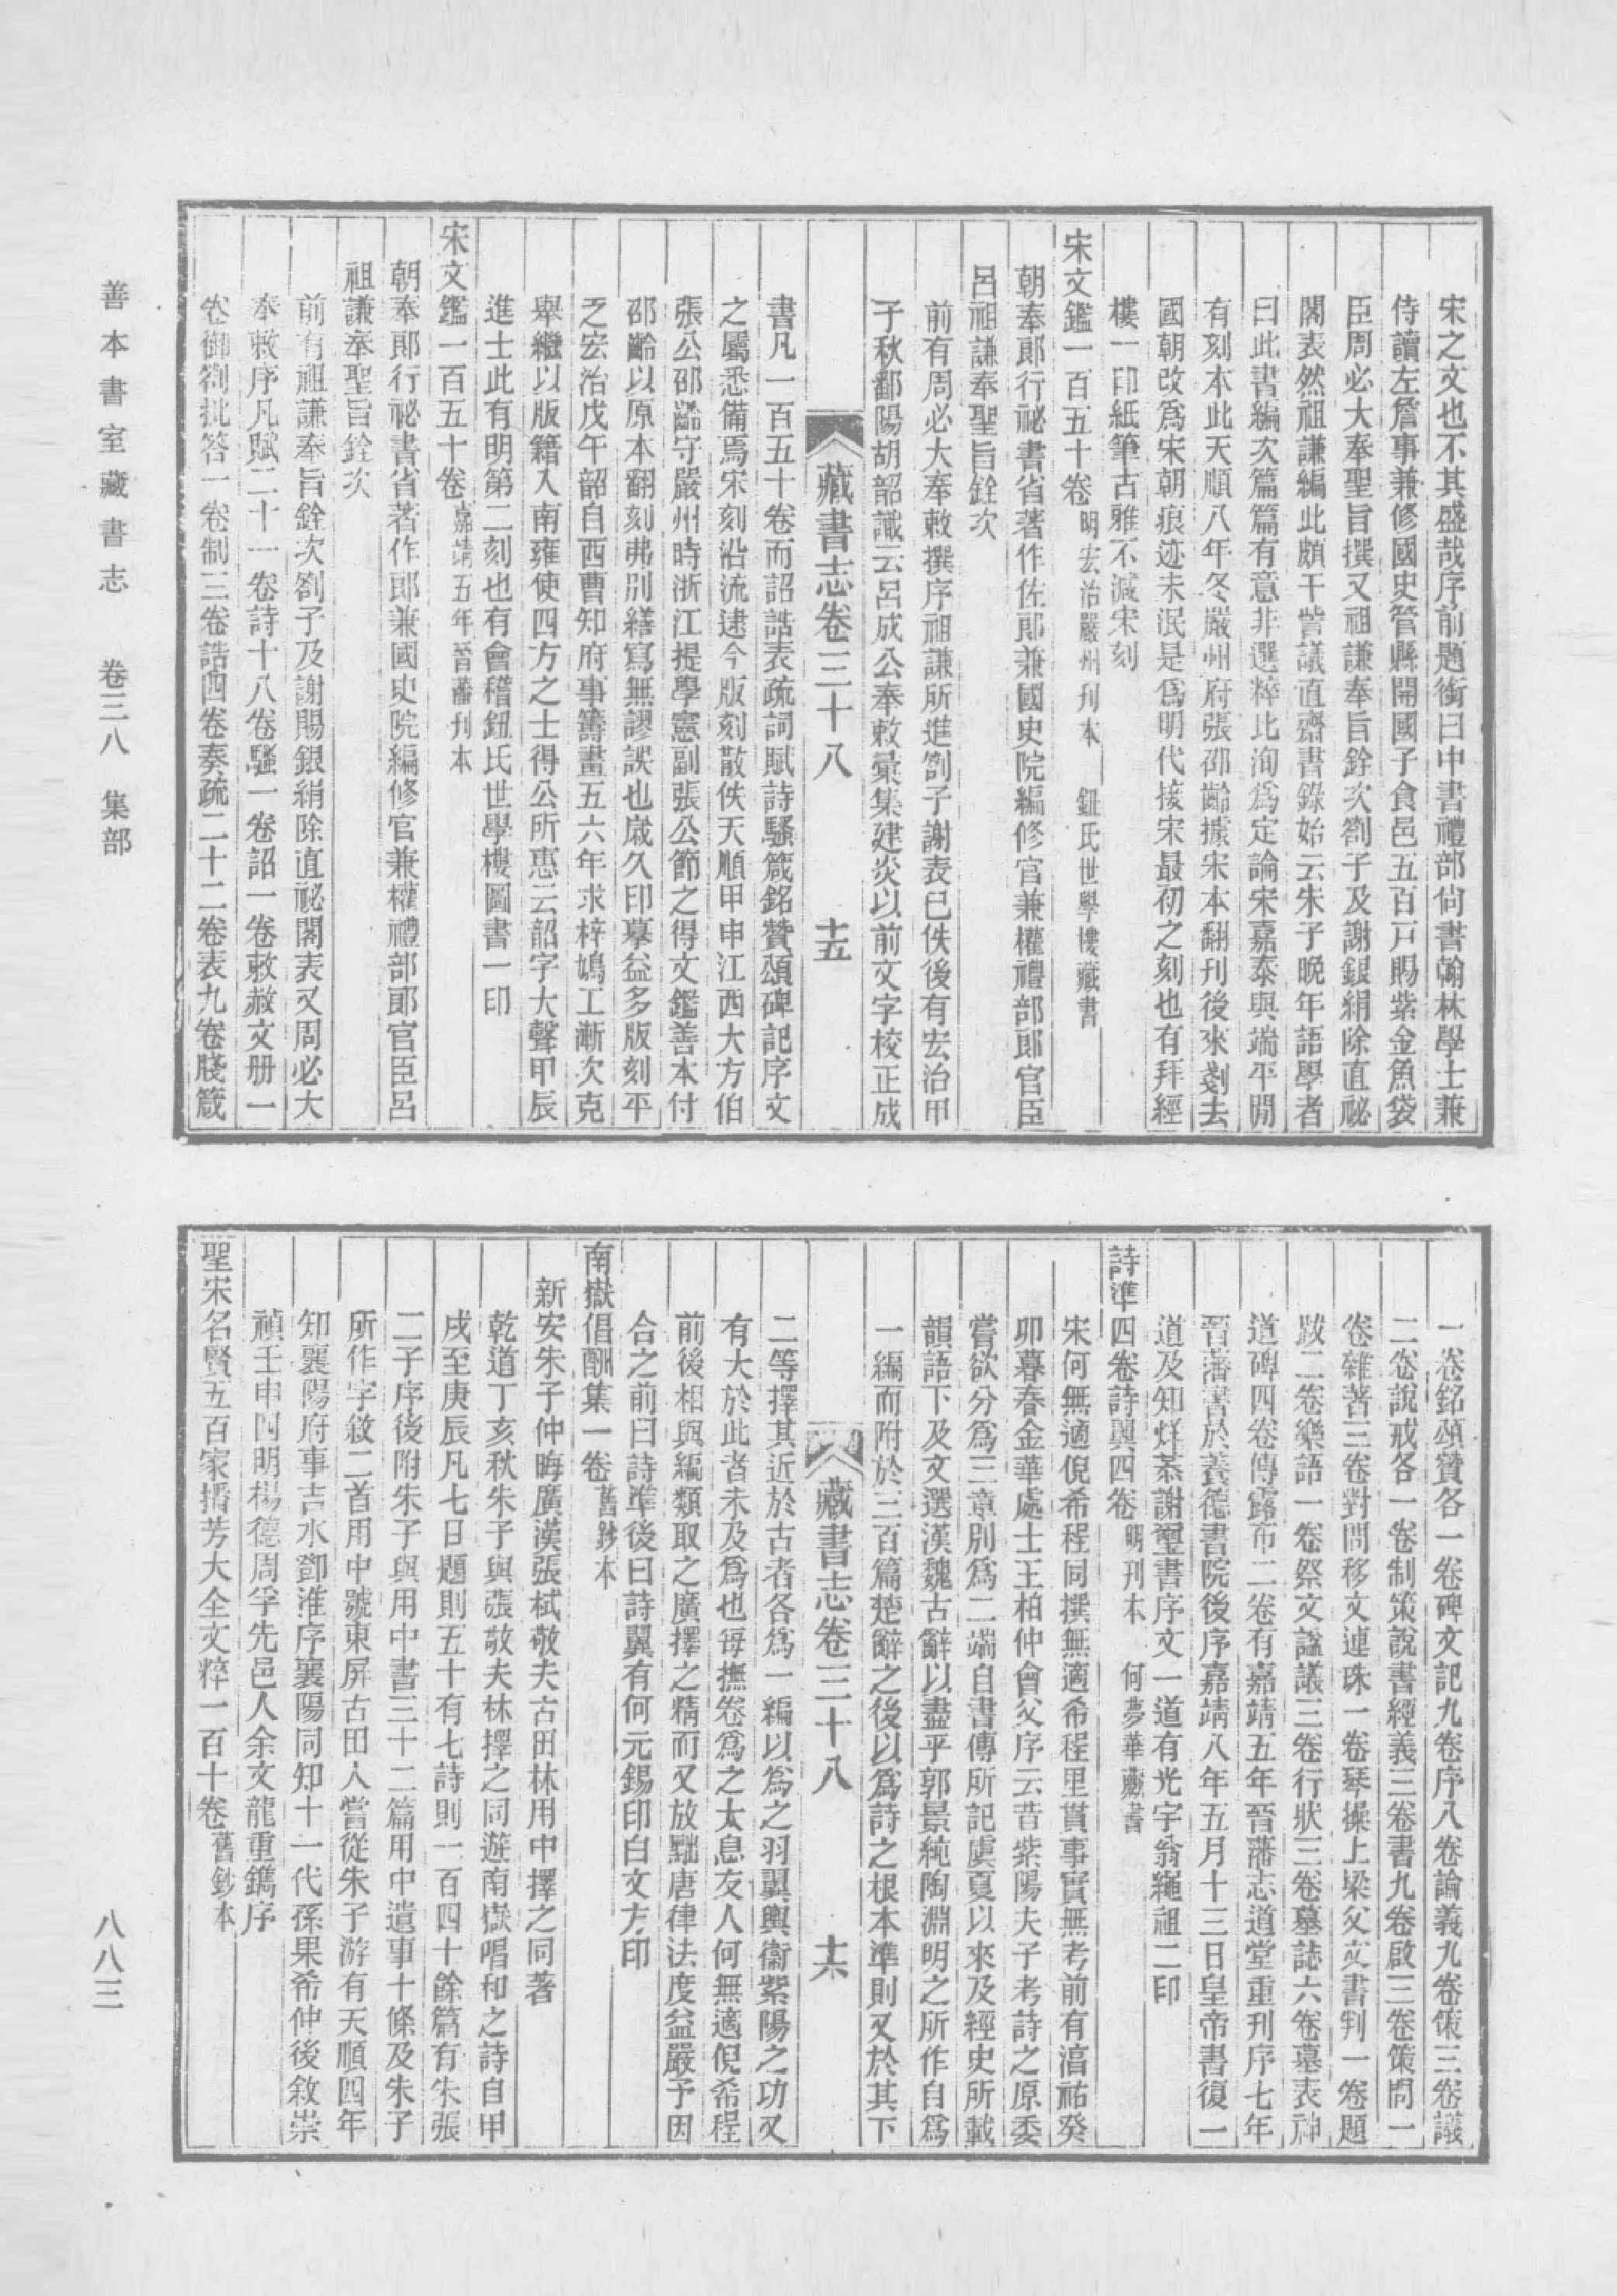 宋之文也不其盛哉序前題銜曰中書禮部尙書翰林學士兼
侍讀左詹事兼修國史管縣開國子食邑五百戶賜紫金魚袋
臣周必大奉聖旨撰又祖謙奉旨銓次劄子及謝銀絹除直祕
閣表然祖謙編此頗干訾議直齋書錄始云朱子晚年語學者
曰此書編次篇篇有意非選粹比洵爲定論宋嘉泰與端平閒
有刻本此天順八年冬嚴州府張邵齡據宋本翻刊後來剗去
國朝改爲宋朝痕迹未泯是爲明代接宋最初之刻也有拜經
樓一印紙筆古雅不減宋刻
宋文鑑一百五十卷明宏治嚴州刊本 鈕氏世學樓藏書
朝奉郎行祕書省著作佐郎兼國史院編修官兼權禮部郎官臣
呂祖謙奉聖旨銓次
前有周必大奉敕撰序祖謙所進劄子謝表已佚後有宏治甲
子秋鄱陽胡韶識云呂成公奉敕彙集建炎以前文字校正成
藏書志卷三十八 十五
書凡一百五十卷而詔誥表疏詞賦詩騷箴銘贊頌碑記序文
之屬悉備焉宋刻沿流逮今版刻散佚天順甲申江西大方伯
張公邵齡守嚴州時浙江提學憲副張公節之得文鑑善本付
邵齡以原本翻刻弗別繕寫無謬誤也歲久印摹益多版刻平
乏宏治戊午韶自西曹知府事籌畫五六年求梓鳩工漸次克
舉繼以版籍入南雍使四方之士得公所惠云韶字大聲甲辰
進士此有明第二刻也有會稽鈕氏世學樓圖書一印
宋文鑑一百五十卷嘉靖五年晉藩刊本
朝奉郎行祕書省著作郎兼國史院編修官兼權禮部郎官臣呂
祖謙奉聖旨銓次
前有祖謙奉旨銓次劄子及謝賜銀絹除直祕閣表又周必大
奉敕序凡賦二十一卷詩十八卷騷一卷詔一卷敕赦文册一
卷御劄批答一卷制三卷誥四卷奏疏二十二卷表九卷牋箴
一卷銘頌贊各一卷碑文記九卷序八卷論義九卷策三卷議
二卷說戒各一卷制策說書經義三卷書九卷啟三卷策問一
卷雜著三卷對問移文連珠一卷琴操上梁父文書判一卷題
跋二卷樂語一卷祭文謚議三卷行狀三卷墓誌六卷墓表神
道碑四卷傳露布二卷有嘉靖五年晉藩志道堂重刊序七年
晉藩書於養德書院後序嘉靖八年五月十三日皇帝書復一
道及知烊恭謝璽書序文一道有光宇翁繩祖二印
詩準四卷詩翼四卷明刊本 何夢華藏書
宋何無適倪希程同撰無適希程里貫事實無考前有淳祐癸
卯暮春金華處士王柏仲會父序云昔紫陽夫子考詩之原委
嘗欲分爲三章別爲二端自書傳所記虞夏以來及經史所載
韻語下及文選漢魏古辭以盡乎郭景純陶淵明之所作自爲
一編而附於三百篇楚辭之後以爲詩之根本準則又於其下
藏書志卷三十八 十六
二等擇其近於古者各爲一編以爲之羽翼輿衞紫陽之功又
有大於此者未及爲也每撫卷爲之太息友人何無適倪希程
前後相與編類取之廣擇之精而又放黜唐律法度益嚴予因
合之前曰詩準後曰詩翼有何元錫印白文方印
南嶽倡酬集一卷舊鈔本
新安朱子仲晦廣漢張栻敬夫古田林用中擇之同著
乾道丁亥秋朱子與張敬夫林擇之同遊南嶽唱和之詩自甲
戌至庚辰凡七日題則五十有七詩則一百四十餘篇有朱張
二子序後附朱子與用中書三十二篇用中遺事十條及朱子
所作字敘二首用中號東屏古田人嘗從朱子游有天順四年
知襄陽府事吉水鄧淮序襄陽同知十一代孫果希仲後敘崇
禎壬申四明楊德周孚先邑人余文龍重鐫序
聖宋名賢五百家播芳大全文粹一百十卷舊鈔本
善本書室藏書志 卷三八 集部
八八三